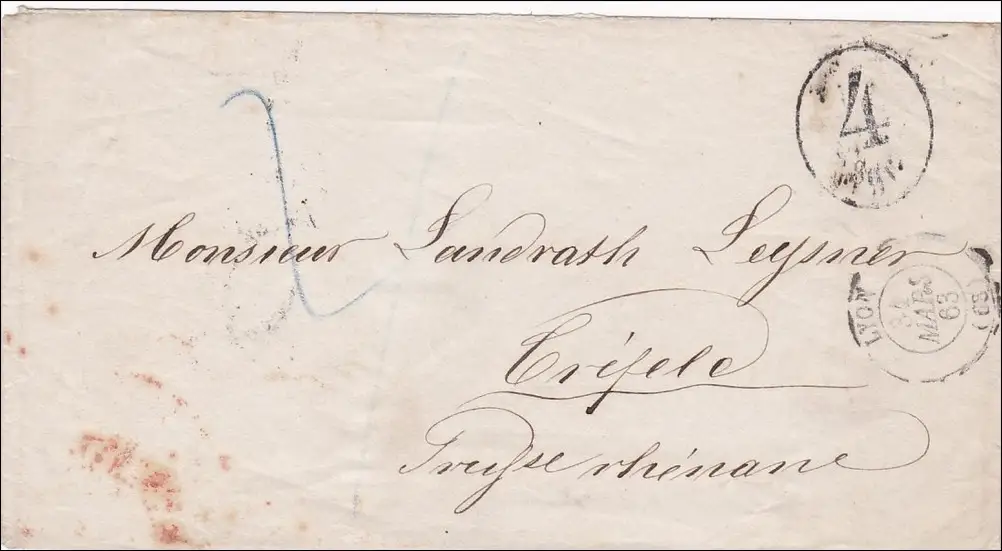 4
Sgr.
Monsieur Landrath Leysner
LYON
MARS
63
(68)
Créfeld
Prusse rhénane